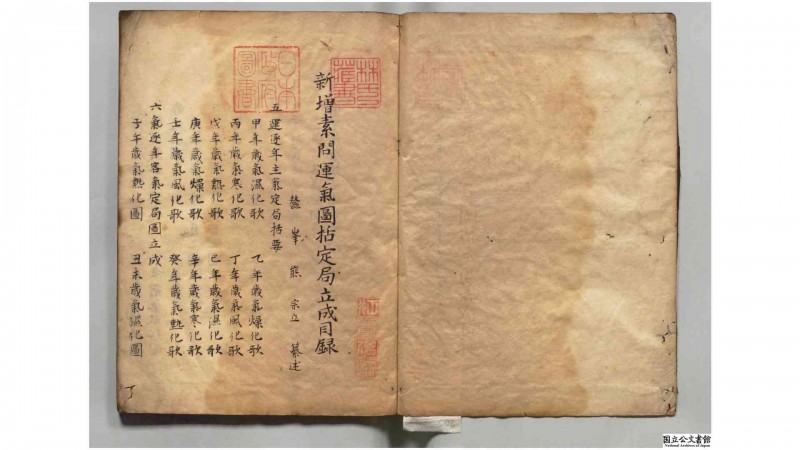 林氏藏書
日本政府圖書
新增素問運氣圖括定局立成目錄
鼇峯熊宗立纂述
五運逐年主氣定局括要
甲年歲氣濕化歌 乙年歲氣燥化歌
丙年歲氣寒化歌 丁年歲氣風化歌
戊年歲氣熱化歌 己年歲氣濕化歌
庚年歲氣燥化歌 辛年歲氣寒化歌
壬年歲氣風化歌 癸年歲氣熱化歌
六氣逐年客氣定局圖立成
子午歲氣熱化圖 丑未歲氣濕化圖
国立公文書館
National Archives of Japan